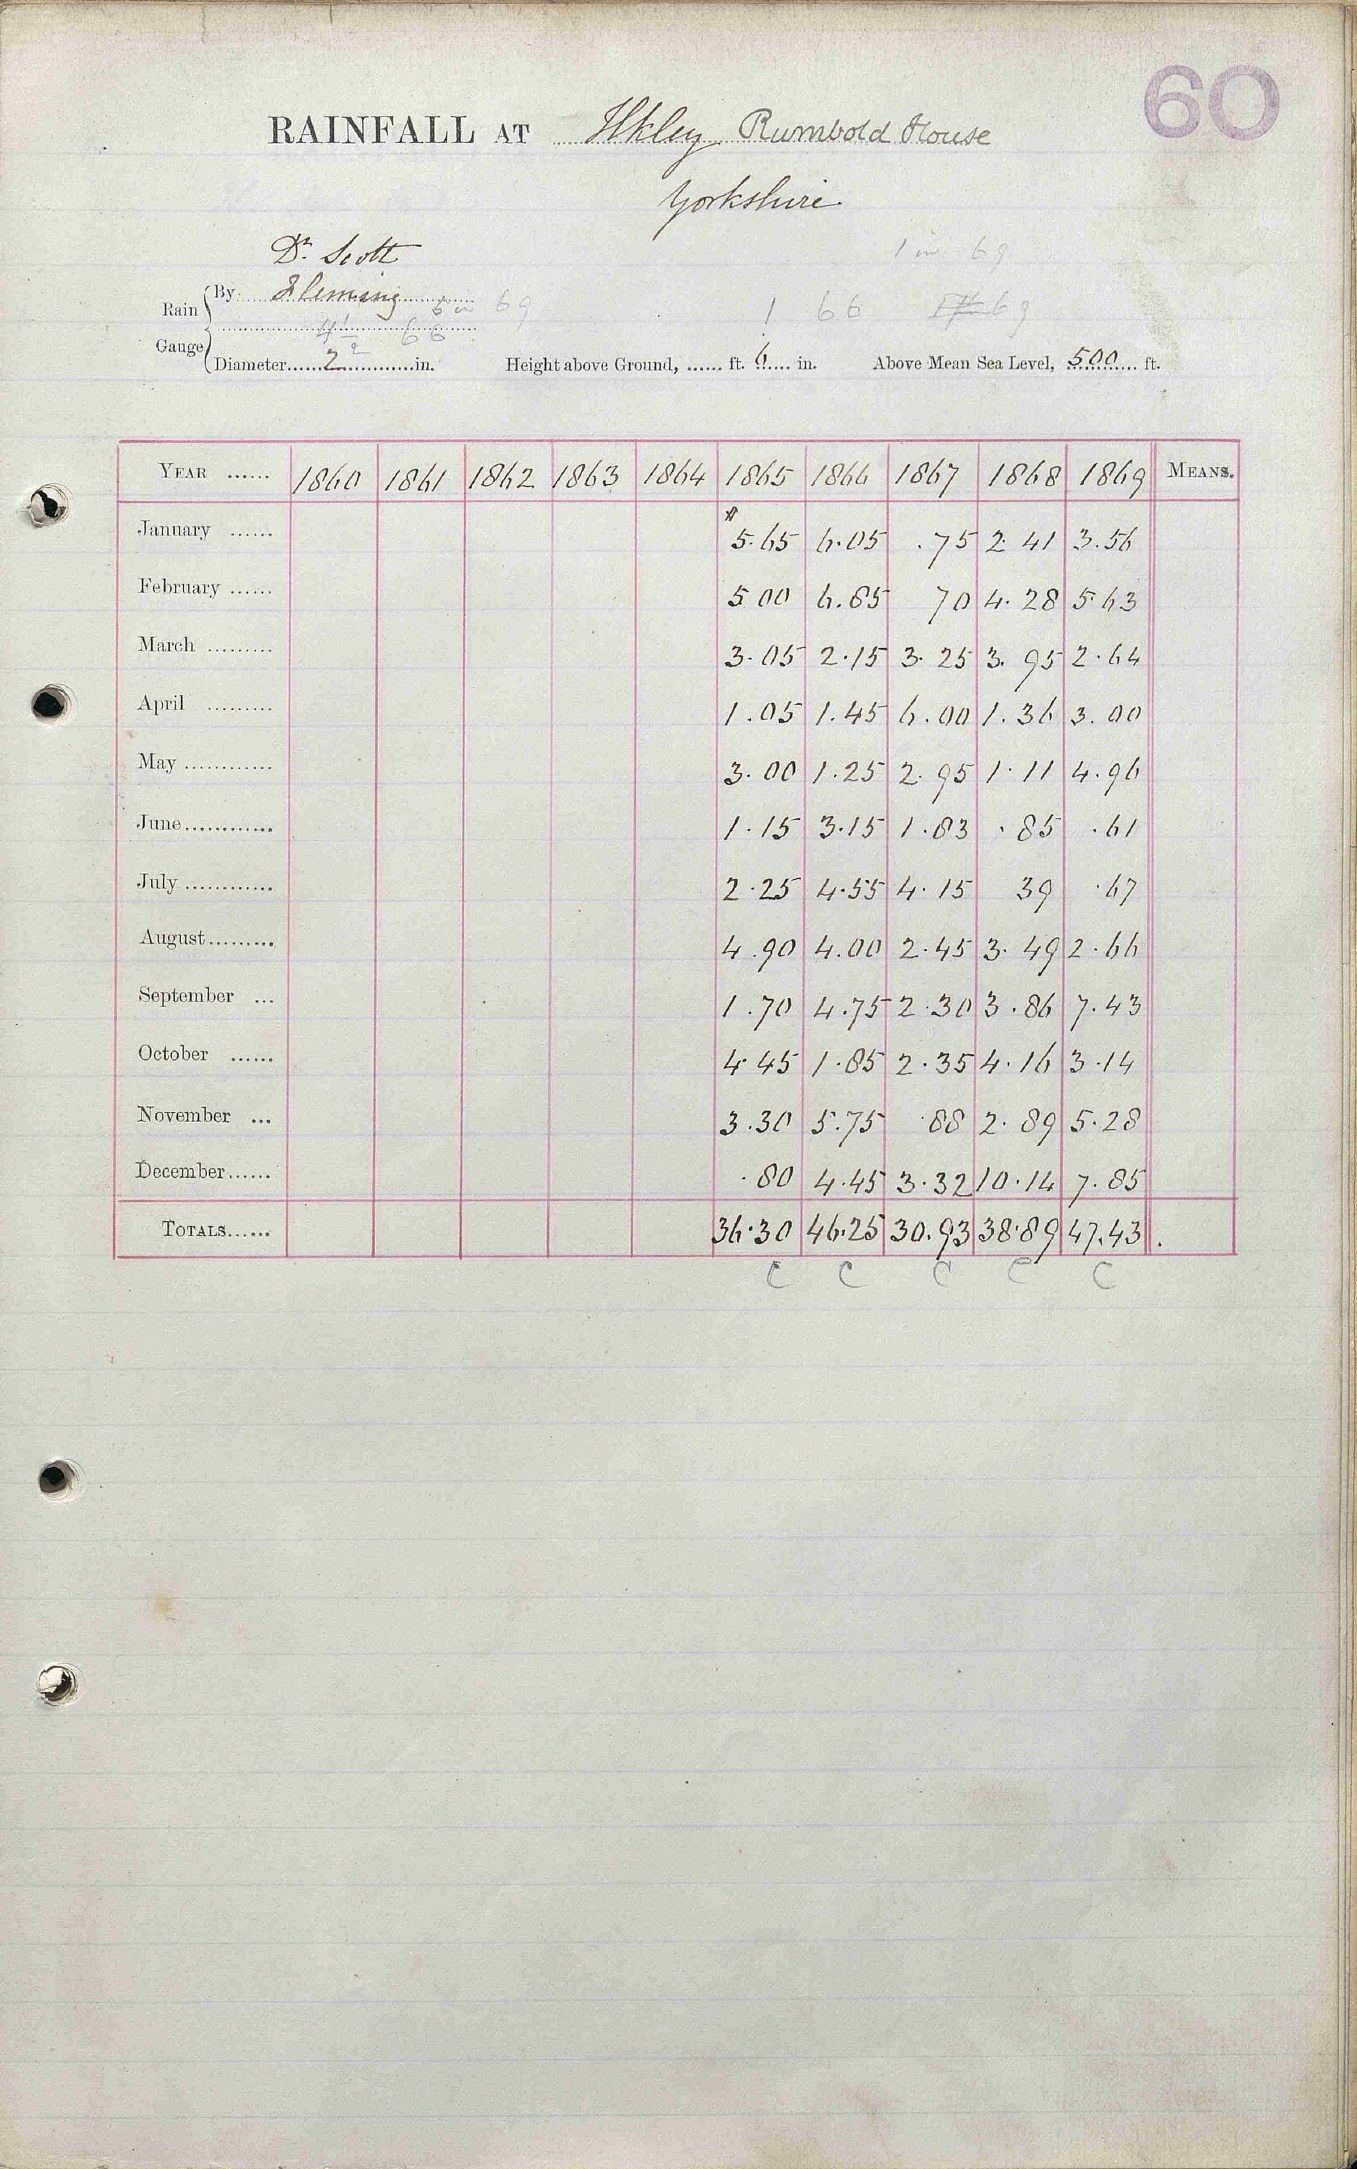 60
RAINFALL AT Ilkley Rumbold House
Yorkshire
Dr. Scott
1 in 69
Rain Gauge By Fleming 5 in 69
4 1/2 66
1 66 69
Diameter......2......in. Height above Ground, ...... ft. 6 in. Above Mean Sea Level, 500 ft.
YEAR ...... 1860 1861 1862 1863 1864 1865 1866 1867 1868 1869 MEANS.
January ...... 5.65 6.05 .75 2.41 3.56
February ...... 5 00 6.85 70 4.28 5.63
March ......... 3.05 2.15 3.25 3.95 2.64
April ......... 1.05 1.45 6.00 1.36 3.00
May ............ 3.00 1.25 2.95 1.11 4.96
June............ 1.15 3.15 1.83 .85 .61
July ............ 2.25 4.55 4.15 39 .67
August......... 4.90 4.00 2.45 3.49 2.66
September ... 1.70 4.75 2.30 3.86 7.43
October ...... 4.45 1.85 2.35 4.16 3.14
November ... 3.30 5.75 .88 2.89 5.28
December...... .80 4.45 3.32 10.14 7.85
TOTALS...... 36.30 46.25 30.93 38.89 47.43
C C C C C